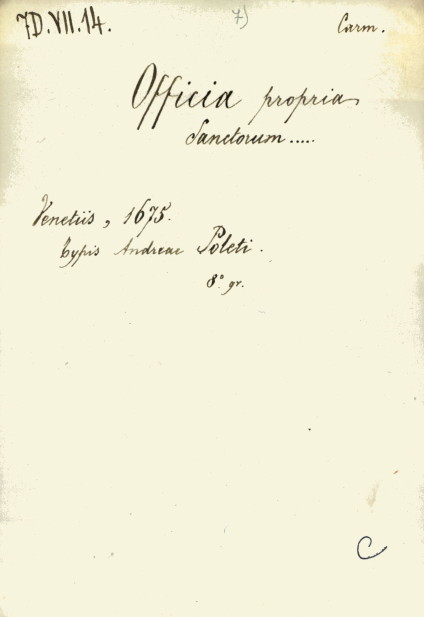 7D.VII.14. 7) Carm.
Officia propria
Sanctorum.....
Venetiis, 1675.
typis Andreae Poleti.
8° gr.
C